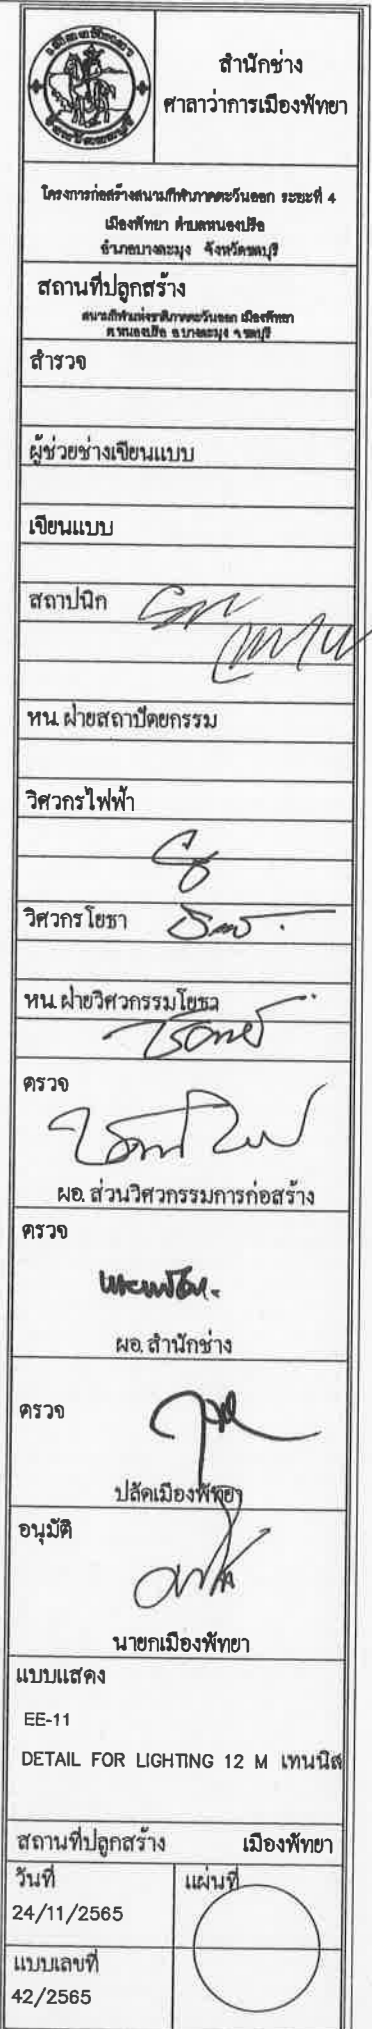 สำนักช่าง
ศาลาว่าการเมืองพัทยา
โครงการก่อสร้างสนามกีฬาภาคตะวันออก ระยะที่ 4
เมืองพัทยา ตำบลหนองปรือ
อำเภอบางละมุง จังหวัดชลบุรี
สถานที่ปลูกสร้าง
สนามกีฬาแห่งชาติภาคตะวันออก เมืองพัทยา
ต.หนองปรือ อ.บางละมุง จ.ชลบุรี
สำรวจ
ผู้ช่วยช่างเขียนแบบ
เขียนแบบ
สถาปนิก
หน.ฝ่ายสถาปัตยกรรม
วิศวกรไฟฟ้า
วิศวกรโยธา
หน.ฝ่ายวิศวกรรมโยธา
ตรวจ
ผอ.ส่วนวิศวกรรมการก่อสร้าง
ตรวจ
ผอ.สำนักช่าง
ตรวจ
ปลัดเมืองพัทยา
อนุมัติ
นายกเมืองพัทยา
แบบแสดง
EE-11
DETAIL FOR LIGHTING 12 M เทนนิส
สถานที่ปลูกสร้าง เมืองพัทยา
วันที่ แผ่นที่
24/11/2565
แบบเลขที่
42/2565